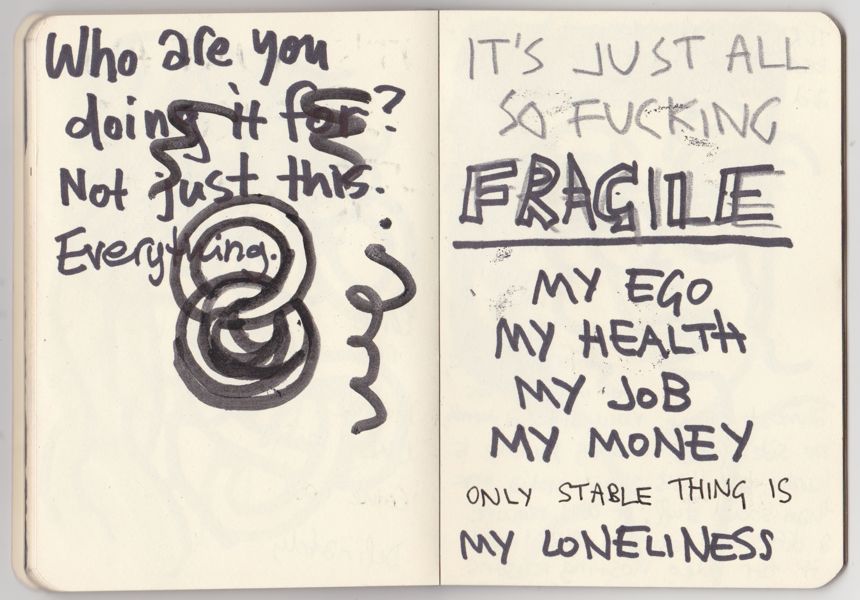 Who are you
doing it for?
Not just this.
Everything.
IT'S JUST ALL
SO FUCKING
FRAGILE
MY EGO
MY HEALTH
MY JOB
MY MONEY
ONLY STABLE THING IS
MY LONELINESS